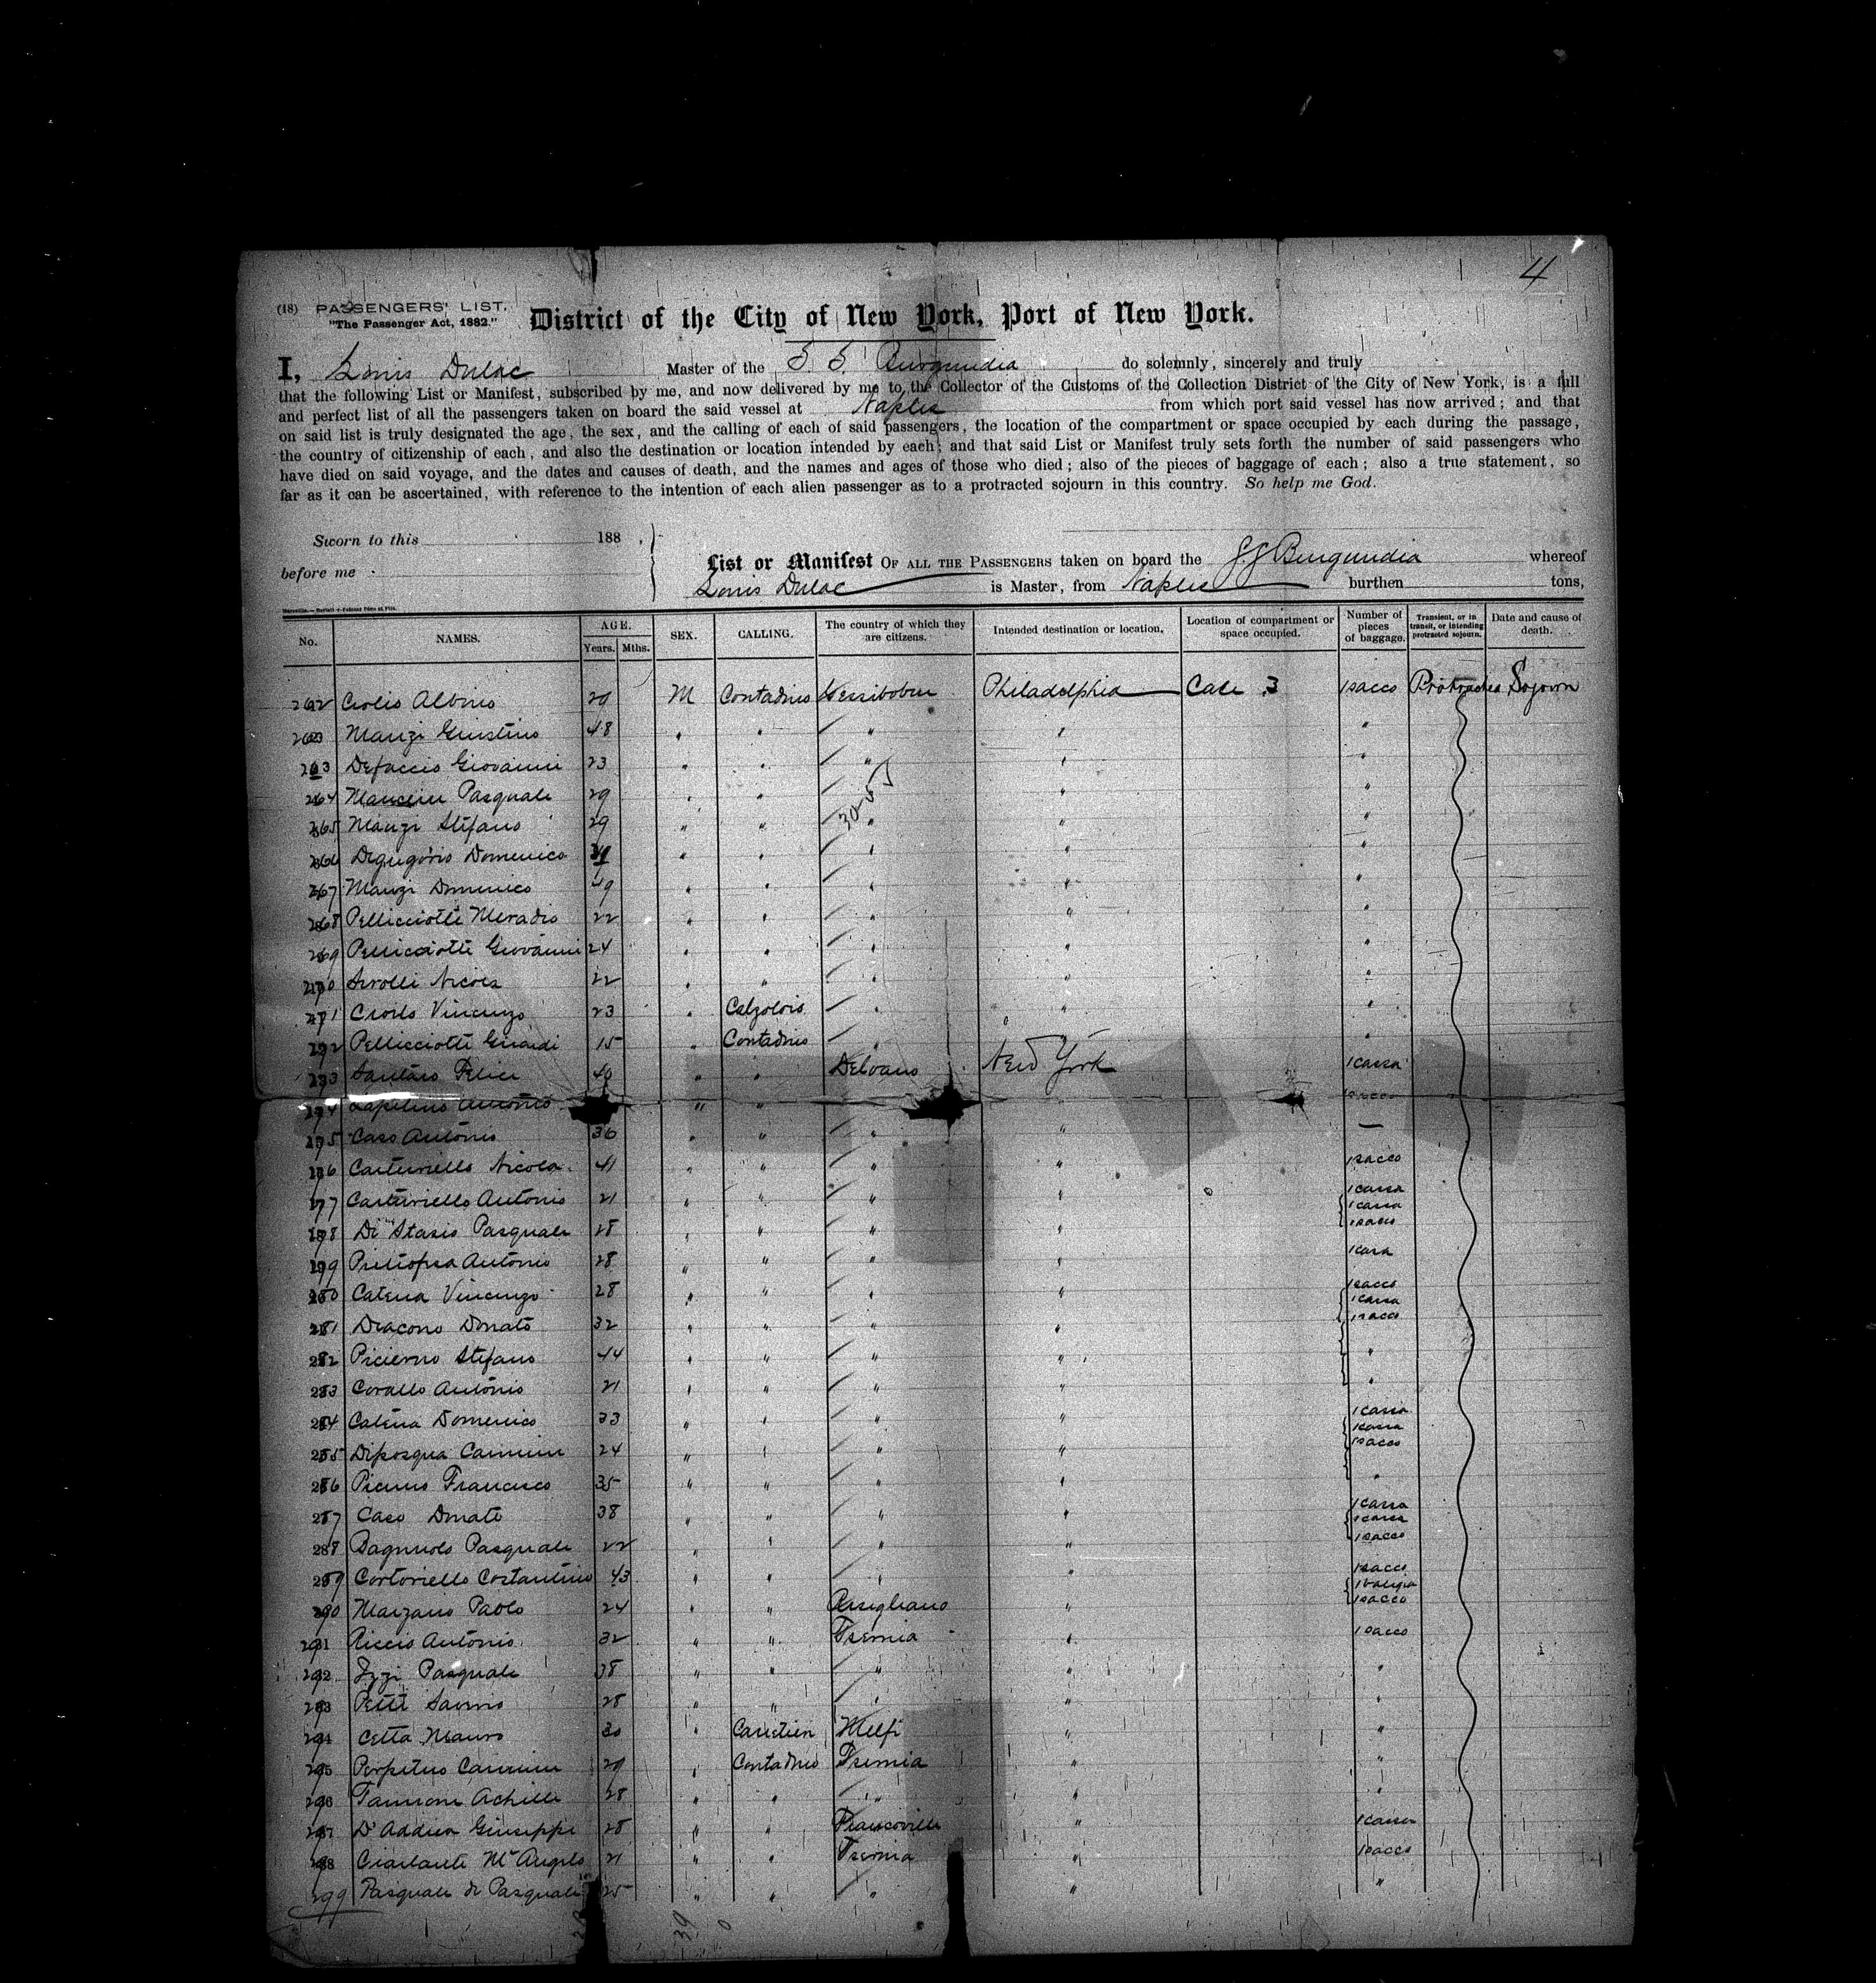 4
(18) PASSENGERS' LIST.
"The Passenger Act, 1882."
District of the City of New York, Port of New York.
I, Louis Dulac Master of the S. S. Burgundia do solemnly, sincerely and truly
that the following List or Manifest, subscribed by me, and now delivered by me to the Collector of the Customs of the Collection District of the City of New York, is a full
and perfect list of all the passengers taken on board the said vessel at Naples from which port said vessel has now arrived; and that
on said list is truly designated the age, the sex, and the calling of each of said passengers, the location of the compartment or space occupied by each during the passage,
the country of citizenship of each, and also the destination or location intended by each; and that said List or Manifest truly sets forth the number of said passengers who
have died on said voyage, and the dates and causes of death, and the names and ages of those who died; also of the pieces of baggage of each; also a true statement, so
far as it can be ascertained, with reference to the intention of each alien passenger as to a protracted sojourn in this country. So help me God.
Sworn to this 188 ,
before me
List or Manifest OF ALL THE PASSENGERS taken on board the S.S Burgundia whereof
Louis Dulac is Master, from Naples burthen tons,
No. NAMES. AGE. Years. Mths. SEX. CALLING. The country of which they are citizens. Intended destination or location. Location of compartment or space occupied. Number of pieces of baggage. Transient, or in transit, or intending protracted sojourn. Date and cause of death.
262 Albino 29 M Contadino Philadelphia Cale 3 1 sacco Protracted Sojourn
Manzi Giustino 48 " " " " "
263 Defaccio Giovanni 23 " " " " "
264 Mancini Pasquale 29 " " " " "
265 Manzi Stefano 29 " " " " "
266 Degregorio Domenico " " " " "
267 Manzi Domenico 49 " " " " "
268 Pellicciotti 22 " " " " "
269 Pellicciotti Giovanni 24 " " " " "
270 Nicola 22 " " " " "
271 Vincenzo 23 " Calzolaio " " "
272 Pellicciotti 15 " Contadino " " "
273 Felice 40 " " New York 1 cassa
274 Antonio " " "
275 Caso Antonio 36 " " " " —
276 Carturiello Nicola 41 " " " " 1 sacco
277 Carturiello Antonio 21 " " " " 1 cassa
278 Di Stasio Pasquale 28 " " " " 1 cassa 1 sacco
279 Antonio 28 " " " " 1 cassa
280 Catena Vincenzo 28 " " " " 1 sacco
281 Diacono Donato 32 " " " " 1 cassa 1 sacco
282 Picierno Stefano 44 " " " " "
283 Corallo Antonio 21 " " " " "
284 Catena Domenico 33 " " " " 1 cassa
285 Carmine 24 " " " " 1 cassa 1 sacco
286 Francesco 35 " " " " "
287 Caso Donato 38 " " " " 1 cassa
288 Pasquale 22 " " " " 1 cassa 1 sacco
289 Cortoriello Costantino 43 " " " " 1 sacco
290 Marzano Paolo 24 " " " 1 valigia 1 sacco
291 Riccio Antonio 32 " " Isernia " 1 sacco
292 Izzi Pasquale 38 " " " " "
293 Petti 28 " " " " "
294 Cetta Mauro 30 " Melfi " "
295 Perpetuo Carmine 29 " Contadino Isernia " "
296 Achille 28 " " " " "
297 D'Addica Giuseppe 28 " " " 1 cassa
298 Ciarlante Mc Angelo 21 " " Isernia " 1 sacco
299 Pasquale di Pasquale 25 " " " " "
39 0